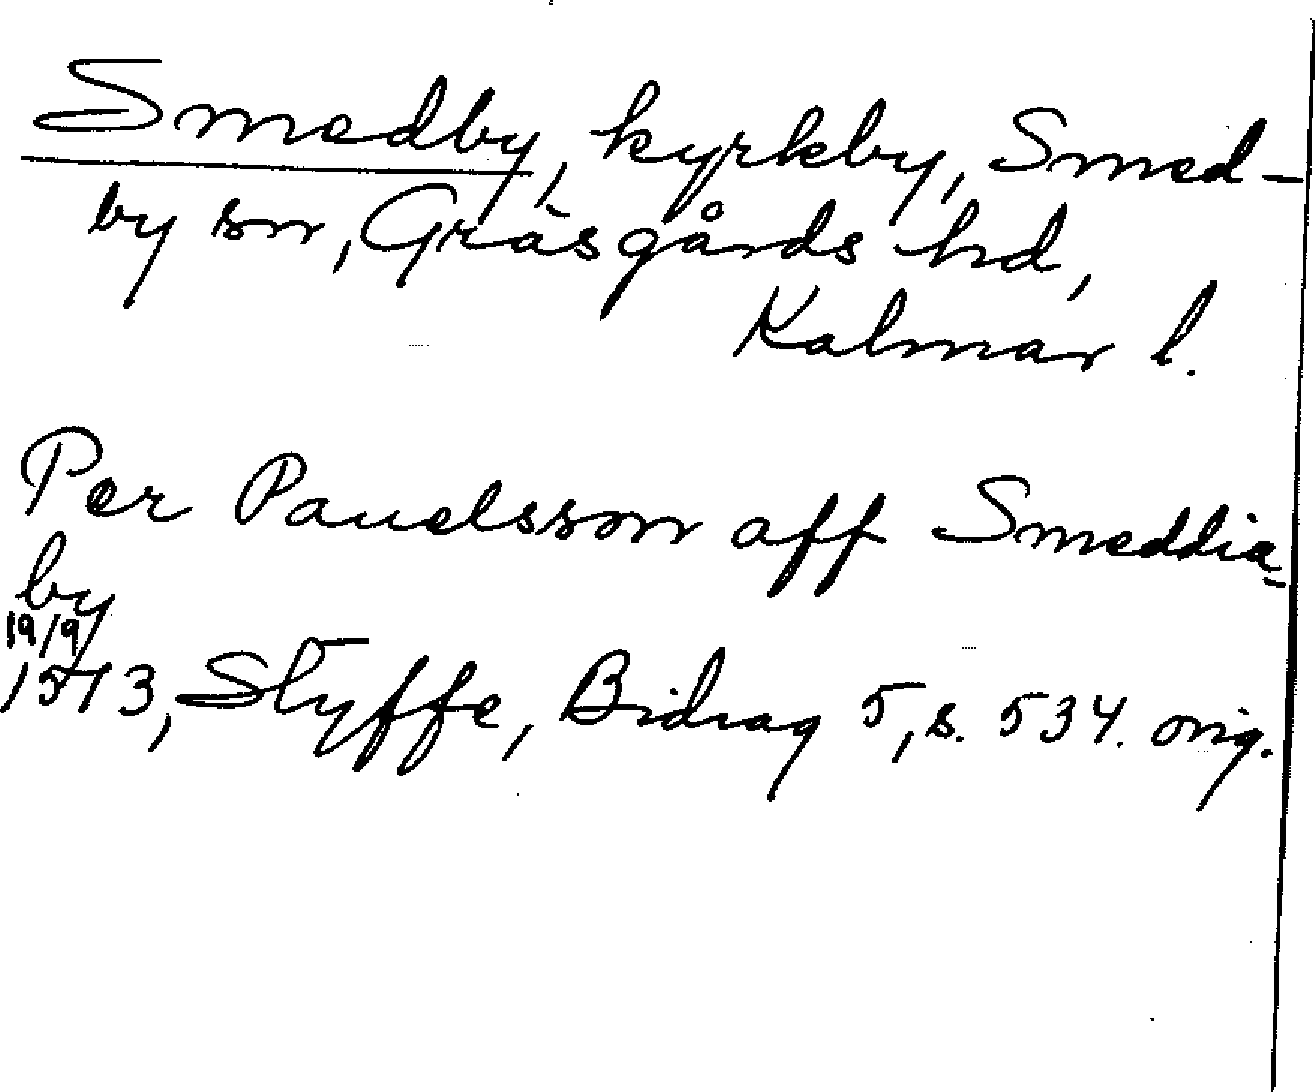 Smedby, kyrkby, Smed-
by sn, Gräsgårds hd,
Kalmar l.
Per Pauelsson aff Smeddia-
by
19/9
1513, Styffe, Bidrag 5, s. 534. orig.